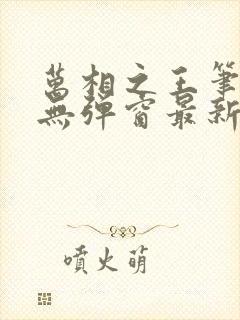 萬相之王筆
無彈窗最新
噴火萌